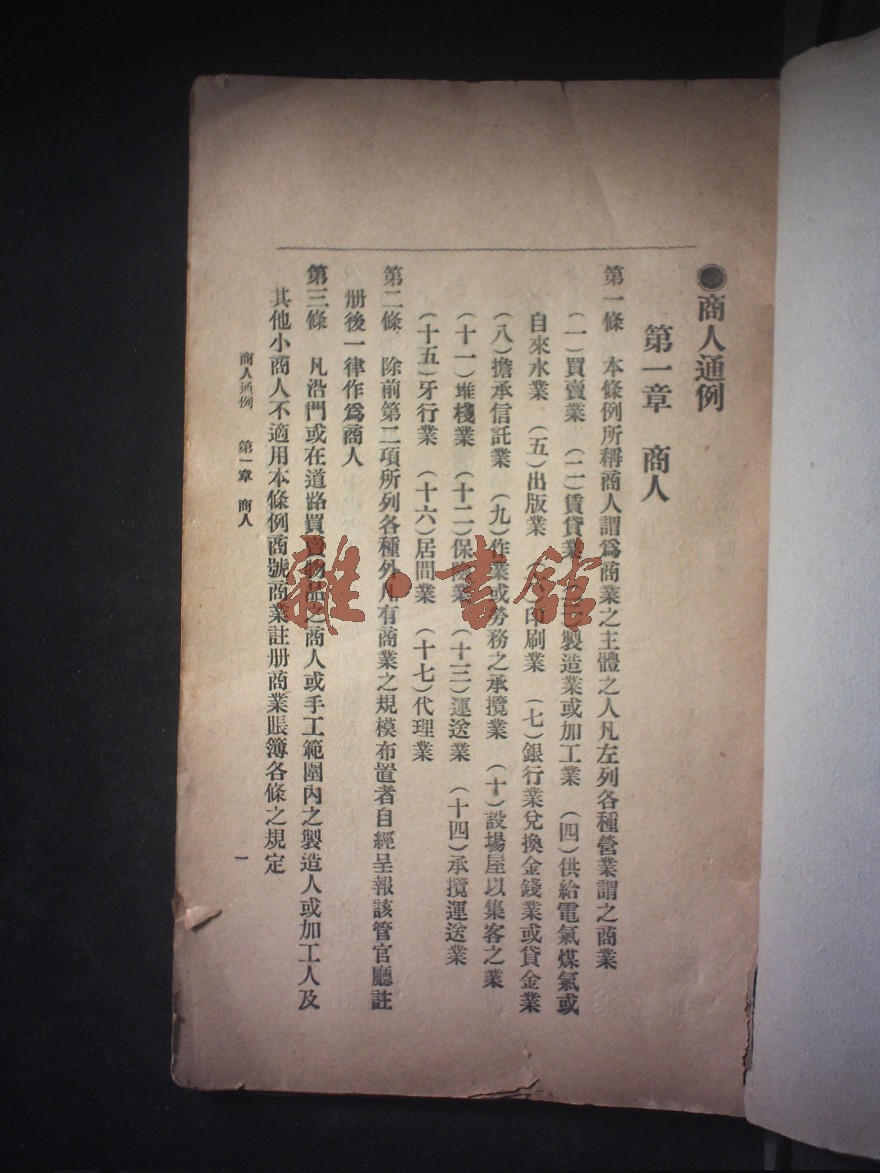 ●商人通例
第一章　商人
第一條　本條例所稱商人謂爲商業之主體之人凡左列各種營業謂之商業
(一)買賣業　(二)賃貸業　製造業或加工業　(四)供給電氣煤氣或
自來水業　(五)出版業　印刷業　(七)銀行業兌換金錢業或貸金業
(八)擔承信託業　(九)作業或勞務之承攬業　(十)設場屋以集客之業
(十一)堆棧業　(十二)保險業　(十三)運送業　(十四)承攬運送業
(十五)牙行業　(十六)居間業　(十七)代理業
第二條　除前第二項所列各種外凡有商業之規模布置者自經呈報該管官廳註
册後一律作爲商人
第三條　凡沿門或在道路買賣物品之商人或手工範圍內之製造人或加工人及
其他小商人不適用本條例商號商業註册商業賬簿各條之規定
商人通例　第一章　商人
一
雜·書館